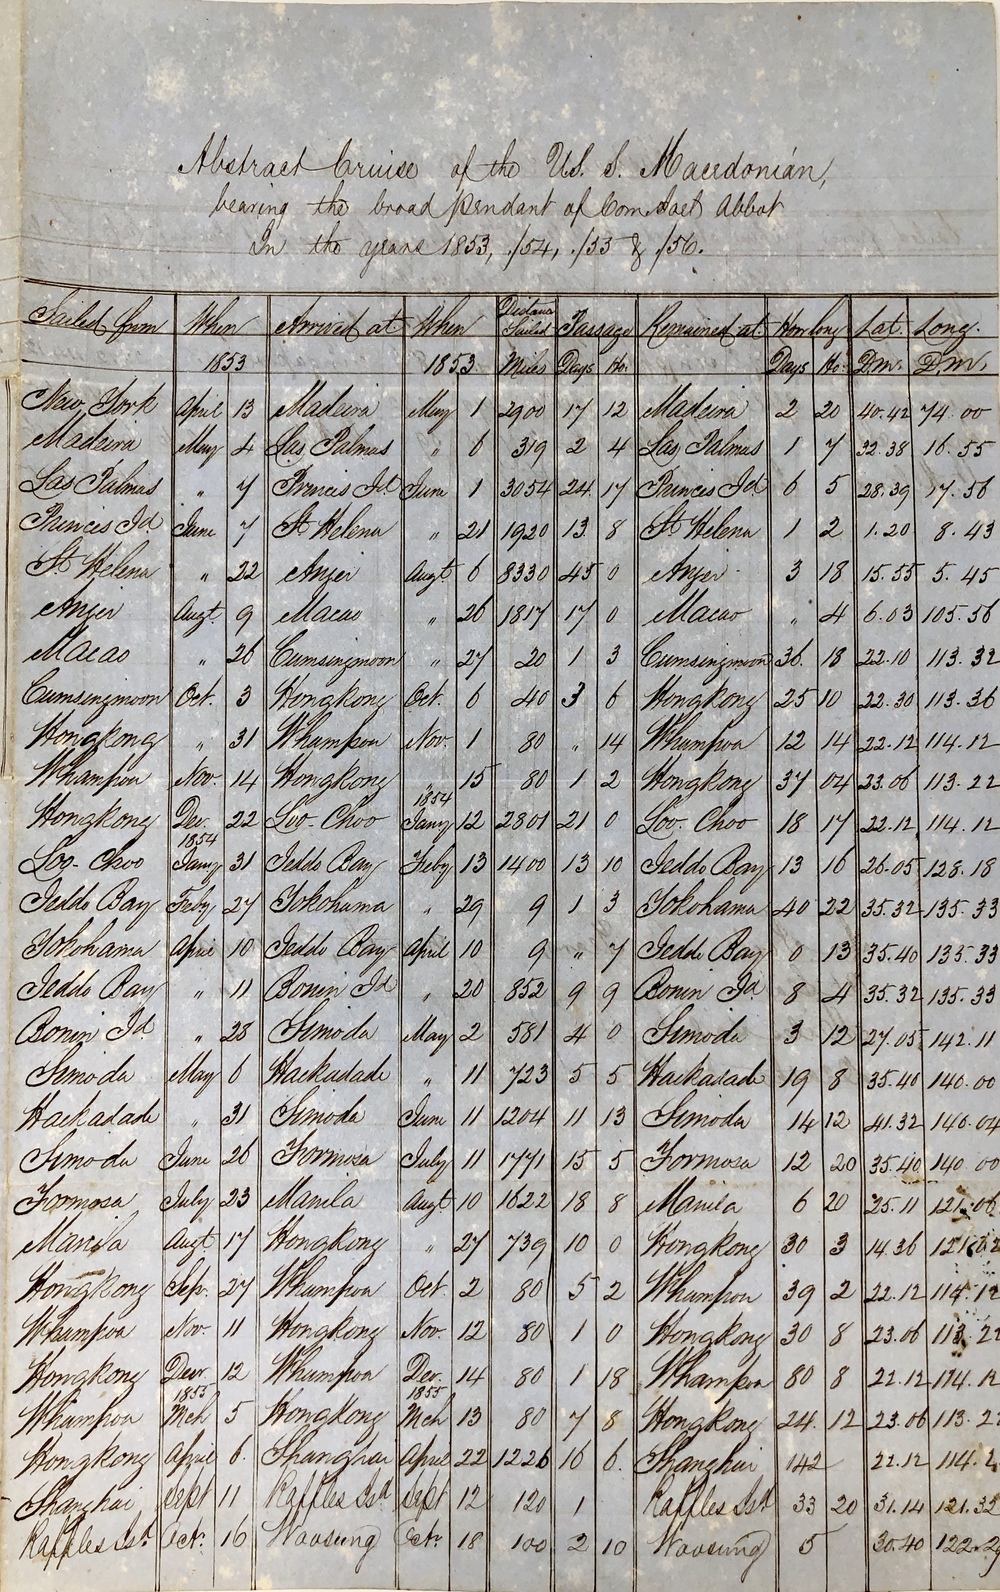 Abstract Cruise of the U.S. S. Macedonian,
bearing the broad pendant of Com Joel Abbot
In the years 1853, /54, /55 & /56.
Sailed from When Arrived at When Distance Sailed Passage Remained at How long Lat. Long.
1853 1853 Miles Days Ho. Days Ho. D.M. D.M.
New York April 13 Madeira May 1 2900 17 12 Madeira 2 20 40.42 74.00
Madeira May 4 Las Palmas " 6 319 2 4 Las Palmas 1 7 32.38 16.55
Las Palmas " 7 Princis Id June 1 3054 24 17 Princis Id 6 5 28.39 17.56
Princis Id June 7 St Helena " 21 1920 13 8 St Helena 1 2 1.20 8.43
St Helena " 22 Anjer Augt 6 8330 45 0 Anjer 3 18 15.55 5.45
Anjer Augt 9 Macao " 26 1817 17 0 Macao " 4 6.03 105.56
Macao " 26 Cumsingmoon " 27 20 1 3 Cumsingmoon 36 18 22.10 113.32
Cumsingmoon Oct. 3 Hongkong Oct. 6 40 3 6 Hongkong 25 10 22.30 113.36
Hongkong " 31 Whampoa Nov. 1 80 " 14 Whampoa 12 14 22.12 114.12
Whampoa Nov. 14 Hongkong " 15 80 1 2 Hongkong 37 04 23.06 113.22
1854
Hongkong Dec. 22 Loo-Choo Jany 12 2801 21 0 Loo-Choo 18 17 22.12 114.12
1854
Loo-Choo Jany 31 Jeddo Bay Feby 13 1400 13 10 Jeddo Bay 13 16 26.05 128.18
Jeddo Bay Feby 27 Yokohama " 29 9 1 3 Yokohama 40 22 35.32 135.33
Yokohama April 10 Jeddo Bay April 10 9 " 7 Jeddo Bay 0 13 35.40 135.33
Jeddo Bay " 11 Bonin Id " 20 852 9 9 Bonin Id. 8 4 35.32 135.33
Bonin Id " 28 Simoda May 2 581 4 0 Simoda 3 12 27.05 142.11
Simoda May 6 Hackadade " 11 723 5 5 Hackadade 19 8 35.40 140.00
Hackadade " 31 Simoda June 11 1204 11 13 Simoda 14 12 41.32 140.04
Simoda June 26 Formosa July 11 1771 15 5 Formosa 12 20 35.40 140.00
Formosa July 23 Manila Augt 10 1622 18 8 Manila 6 20 25.11 121.06
Manila Augt 17 Hongkong " 27 739 10 0 Hongkong 30 3 14.36 121.02
Hongkong Sep. 27 Whampoa Oct. 2 80 5 2 Whampoa 39 2 22.12 114.12
Whampoa Nov. 11 Hongkong Nov. 12 80 1 0 Hongkong 30 8 23.06 113.22
Hongkong Decr 12 Whampoa Dec. 14 80 1 18 Whampoa 80 8 22.12 114.12
1855 1855
Whampoa Mch 5 Hongkong Mch 13 80 7 8 Hongkong 24 12 23.06 113.22
Hongkong April 6 Shanghai April 22 1226 16 6 Shanghai 142 22.12 114.
Shanghai Sept 11 Raffles Isd Sept 12 120 1 Raffles Isd 33 20 31.14 121.32
Raffles Isd Octr 16 Woosung Octr 18 100 2 10 Woosung 5 30.40 122.29